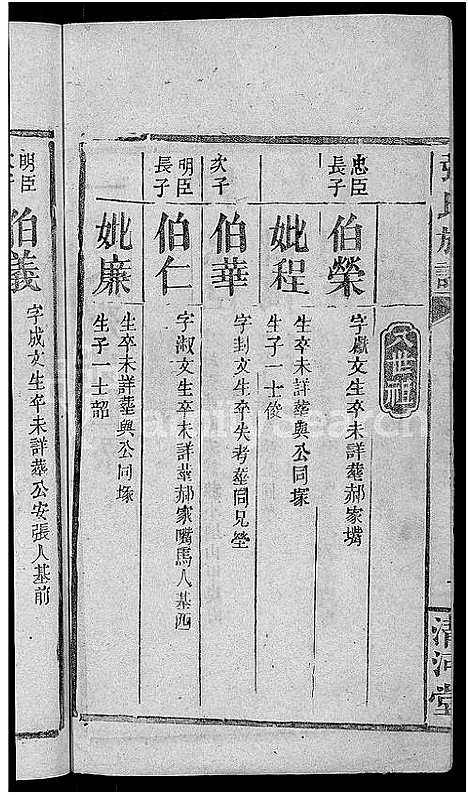 張氏族譜
清河堂
六世祖
忠臣
長子
伯榮
字獻文生卒未詳葬郝家嘴
妣程
生卒未詳葬與公同塚
生子一士俊
次子
伯華
字封文生卒失考葬同兄塋
明臣
長子
伯仁
字淑文生卒未詳葬郝家嘴馬人基西
妣廉
生卒未詳葬與公同塚
生子一士韶
明臣
伯義
字成文生卒未詳葬公安張人基前